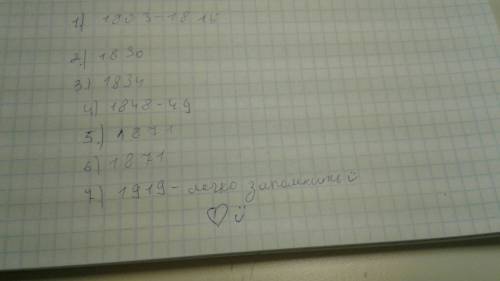 1) 1803-1815
2.) 1830
3) 1834
4) 1848-49
5.) 1871
6) 1871
7) 1919 - легко запомнить